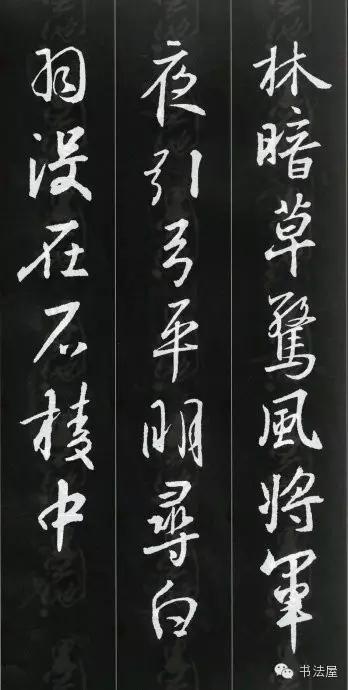 林暗草驚風將軍
夜引弓平明尋白
羽沒在石棱中
书法屋